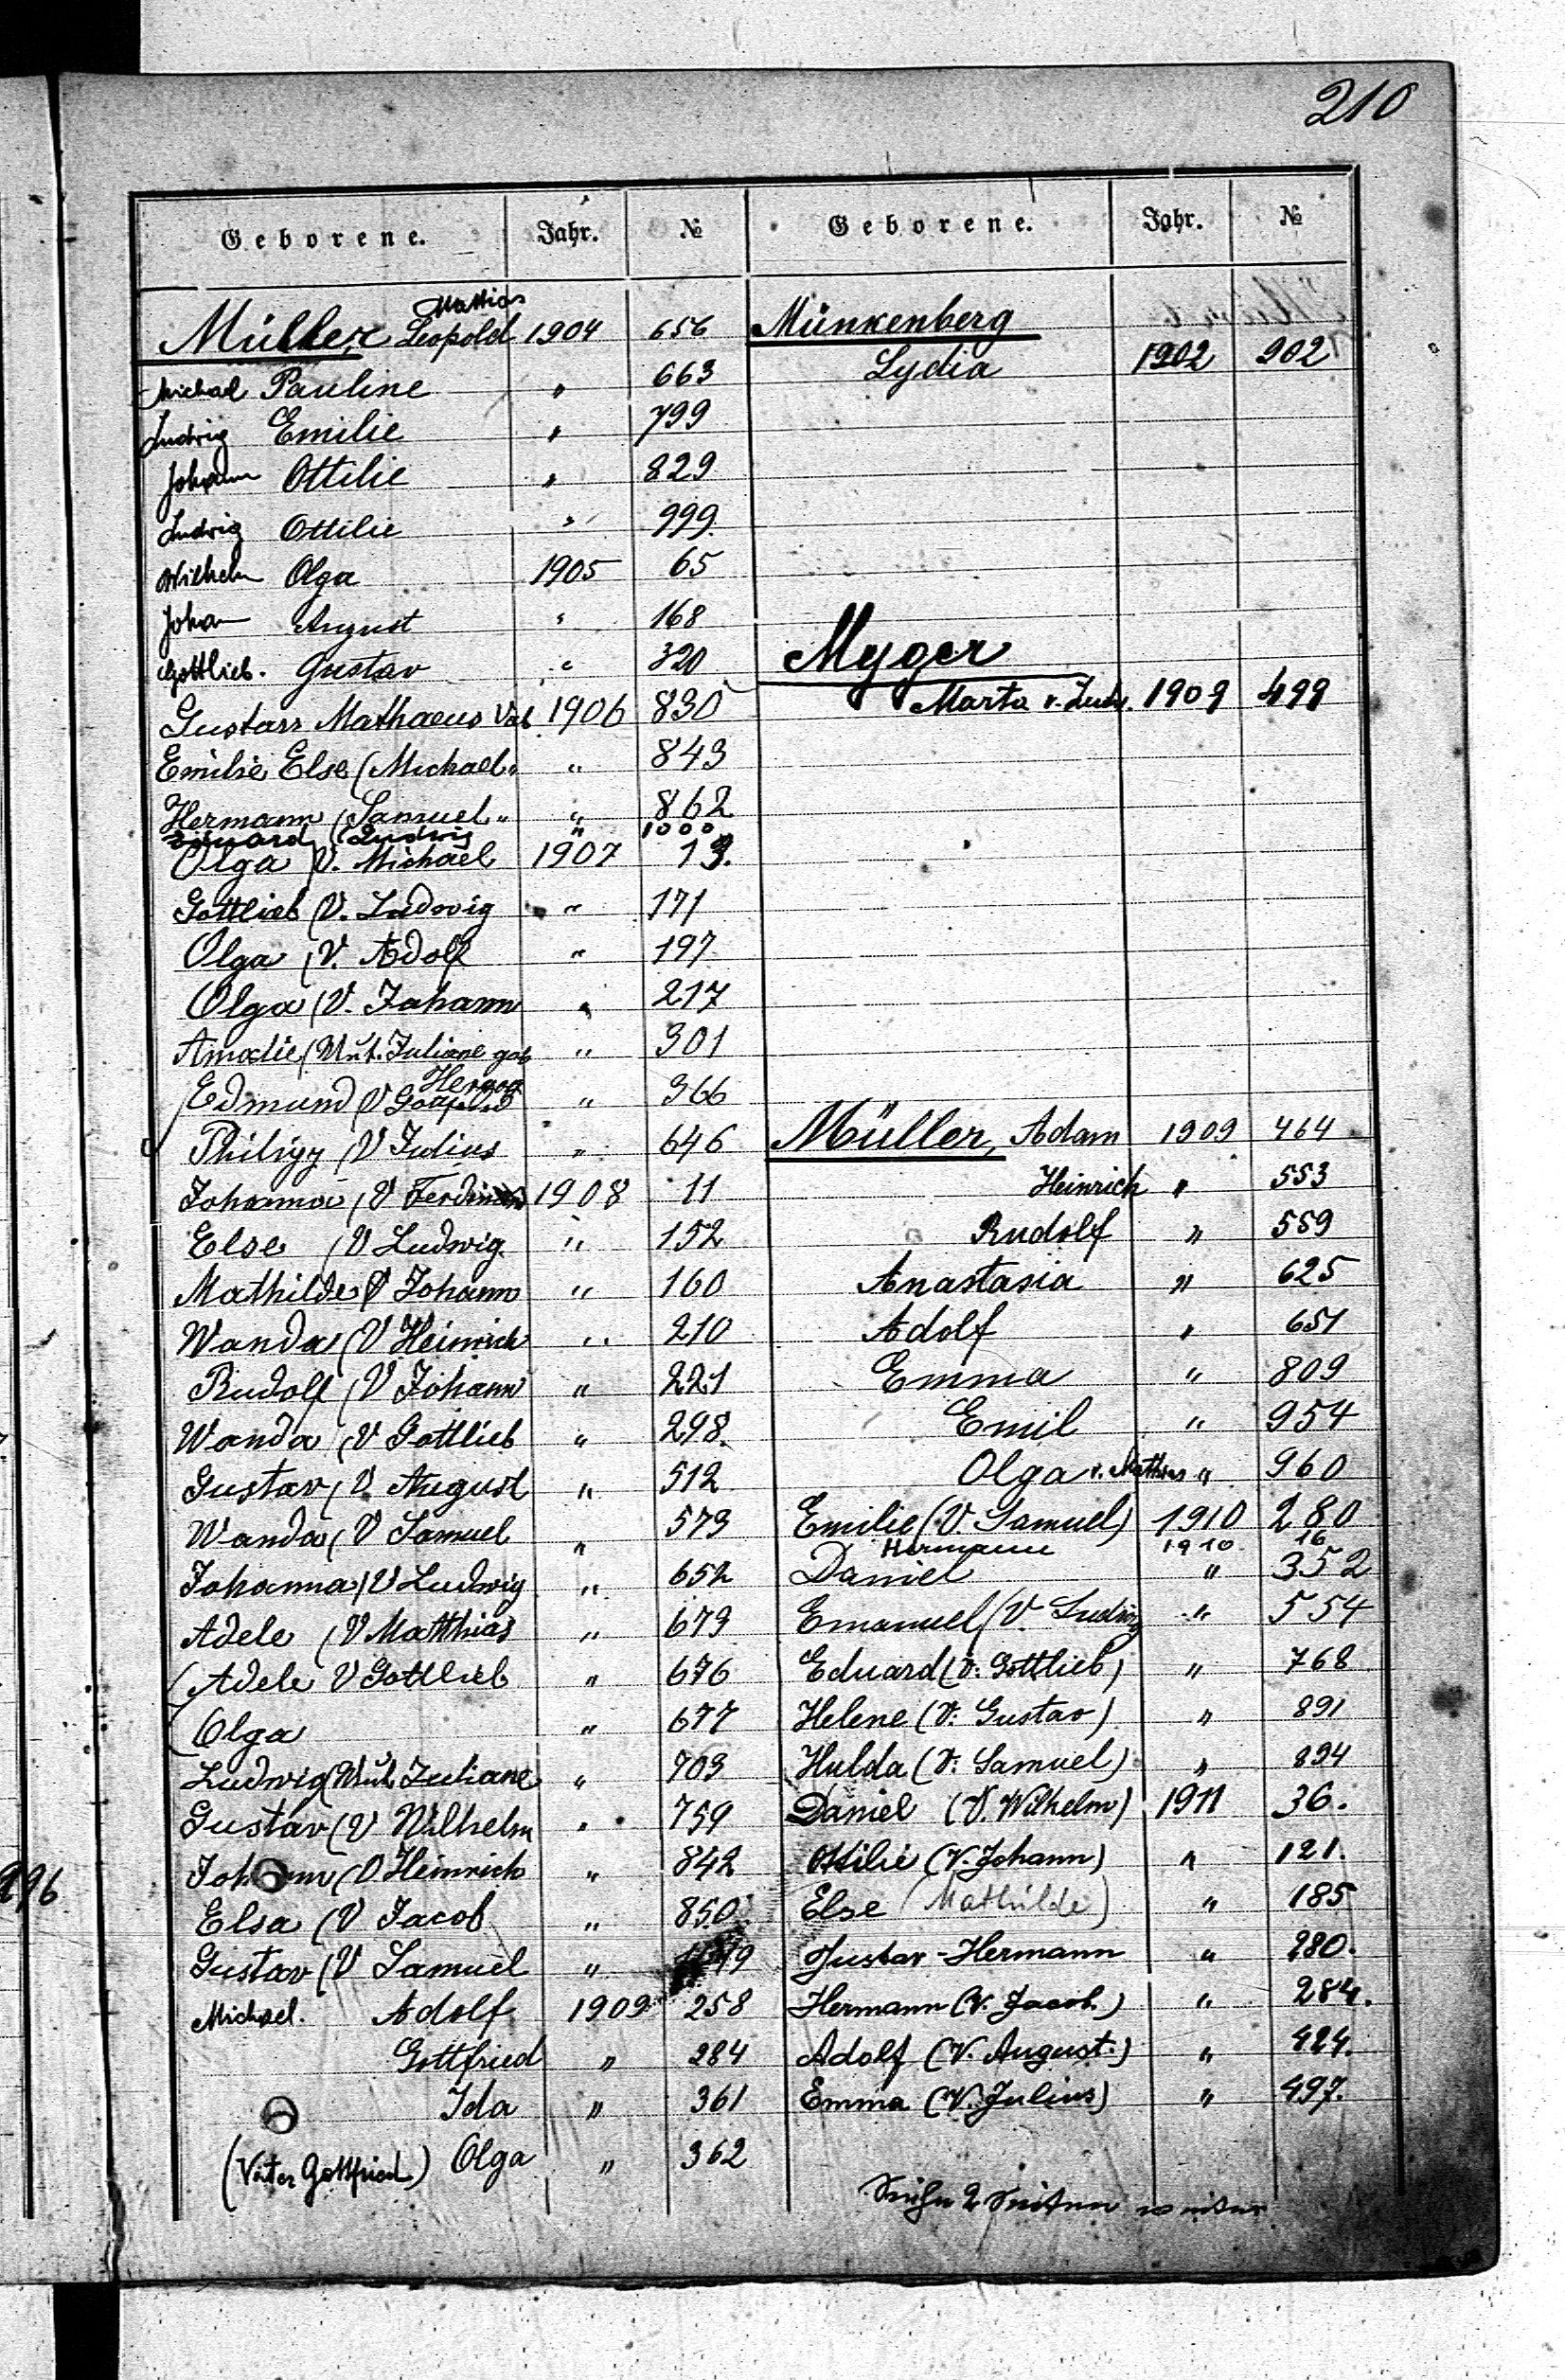 210
Geborene. Jahr. №
Mathias
Müller Leopold 1904 656
Michael Pauline " 663
Ludwig Emilie " 799
Johann Ottilie " 829
Ludwig Ottilie " 999.
Wilhelm Olga 1905 65
Johan August " 168
Gottlieb. Gustav " 320
Gustav Mathaeus Vat 1906 830
Emilie Else (Michael " " 843
Hermann (Samuel " " 862
Eduard (Ludwig " 1000
Olga (V. Michael 1907 13.
Gottlieb (V. Ludwig " 171
Olga (V. Adolf " 197
Olga (V. Johann " 217
Amalie (Mut. Juliane geb " 301
Herzog
Edmund (V " 366
Philipp (V Julius " 646
Johanna (V Ferdinand 1908 11
Else (V Ludwig " 152
Mathilde (V Johann " 160
Wanda (V Heinrich " 210
Rudolf (V Johann " 221
Wanda (V Gottlieb " 298.
Gustav (V. August " 512
Wanda (V Samuel " 573
Johanna (V Ludwig " 652
Adele (V Matthias " 673
(Adele V Gottlieb " 676
(Olga " 677
Ludwig (Mut. Juliane " 703
Gustav (V Wilhelm " 759
Johann (V Heinrich " 842
Elsa (V Jacob " 850
Gustav (V Samuel "
Michael. Adolf 1909 258
Gottfried " 284
Ida " 361
(Vater Gottfried) Olga " 362
Geborene. Jahr. №
Münkenberg
Lydia 1902 902
Myger
Marta v. Ludw. 1909 499
Müller, Adam 1909 464
Heinrich " 553
Rudolf " 559
Anastasia " 625
Adolf " 651
Emma " 809
Emil " 954
Olga v. Mathias " 960
Emilie (V. Samuel) 1910 280
Hermann 1910 16
Daniel " 352
Emanuel (V. Ludwig " 554
Eduard (V. Gottlieb) " 768
Helene (V. Gustav) " 891
Hulda (V. Samuel) " 894
Daniel (V. Wilhelm) 1911 36.
Ottilie (V. Johann) " 121.
Else (Mathilde) " 185
Gustav-Hermann " 280.
Hermann (V. Jacob.) " 284.
Adolf (V. August.) " 424.
Emma (V. Julius) " 497.
Siehe 2 Seiten weiter
296